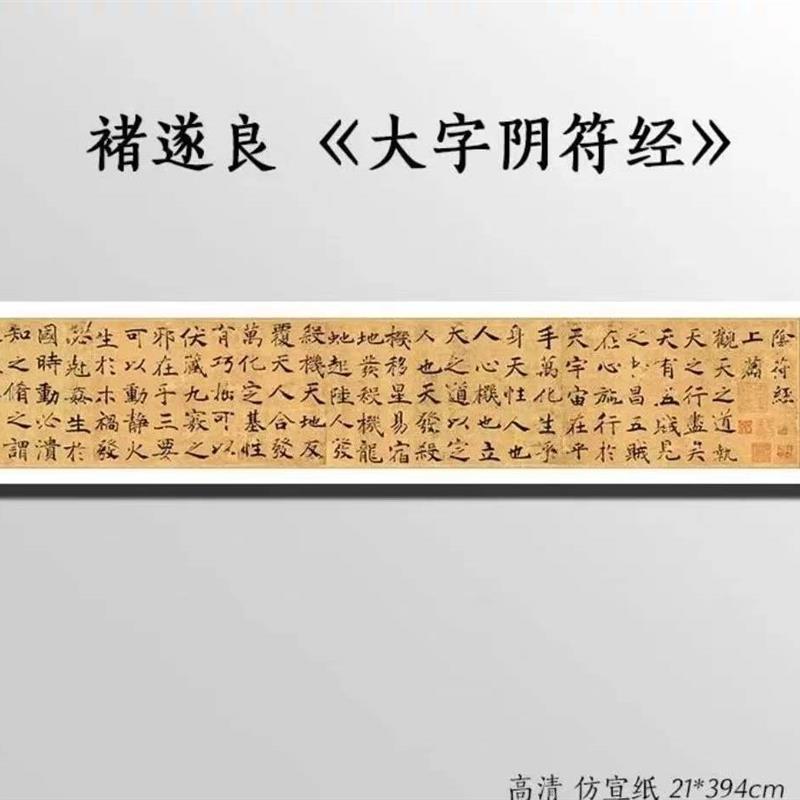 褚遂良 《大字阴符经》
陰符經
上篇
觀天之道執
天之行盡矣
天有五賊見
之者昌五賊
在心施行於
天宇宙在乎
手萬化生乎
身天性人也
人心機也立
天之道以定
人也天發殺
機移星易宿
地發殺機龍
虵起陸人發
殺機天地反
覆天人合發
萬化定基性
有巧拙可以
伏藏九竅之
邪在乎三要
可以動静火
生於木禍發
必剋姦生於
國時動必潰
知之脩之謂
高清 仿宣纸 21*394cm